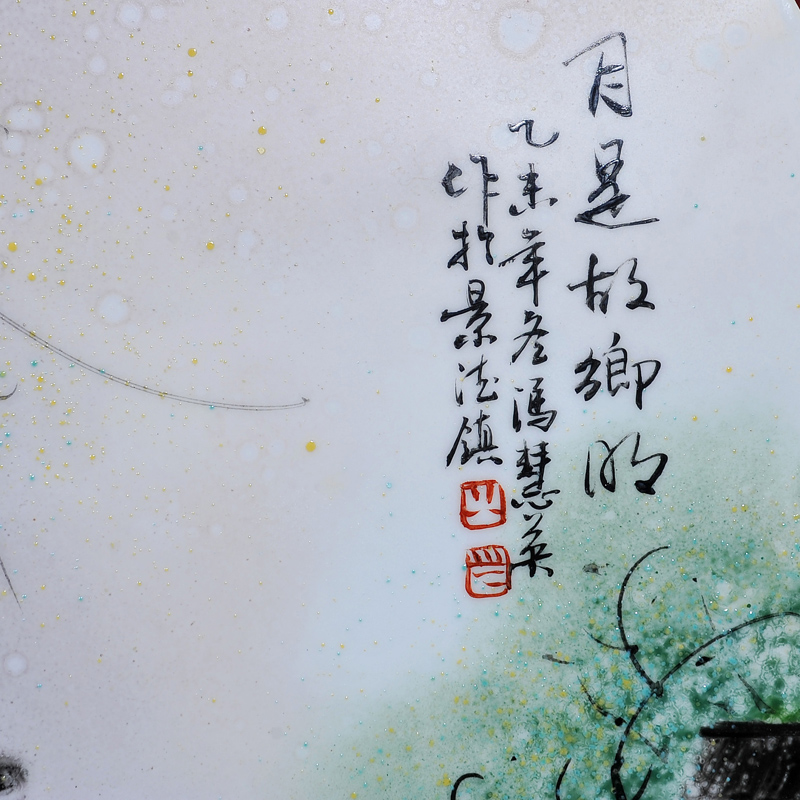 月是故鄉明
乙未年冬馮慧英
作於景德鎮